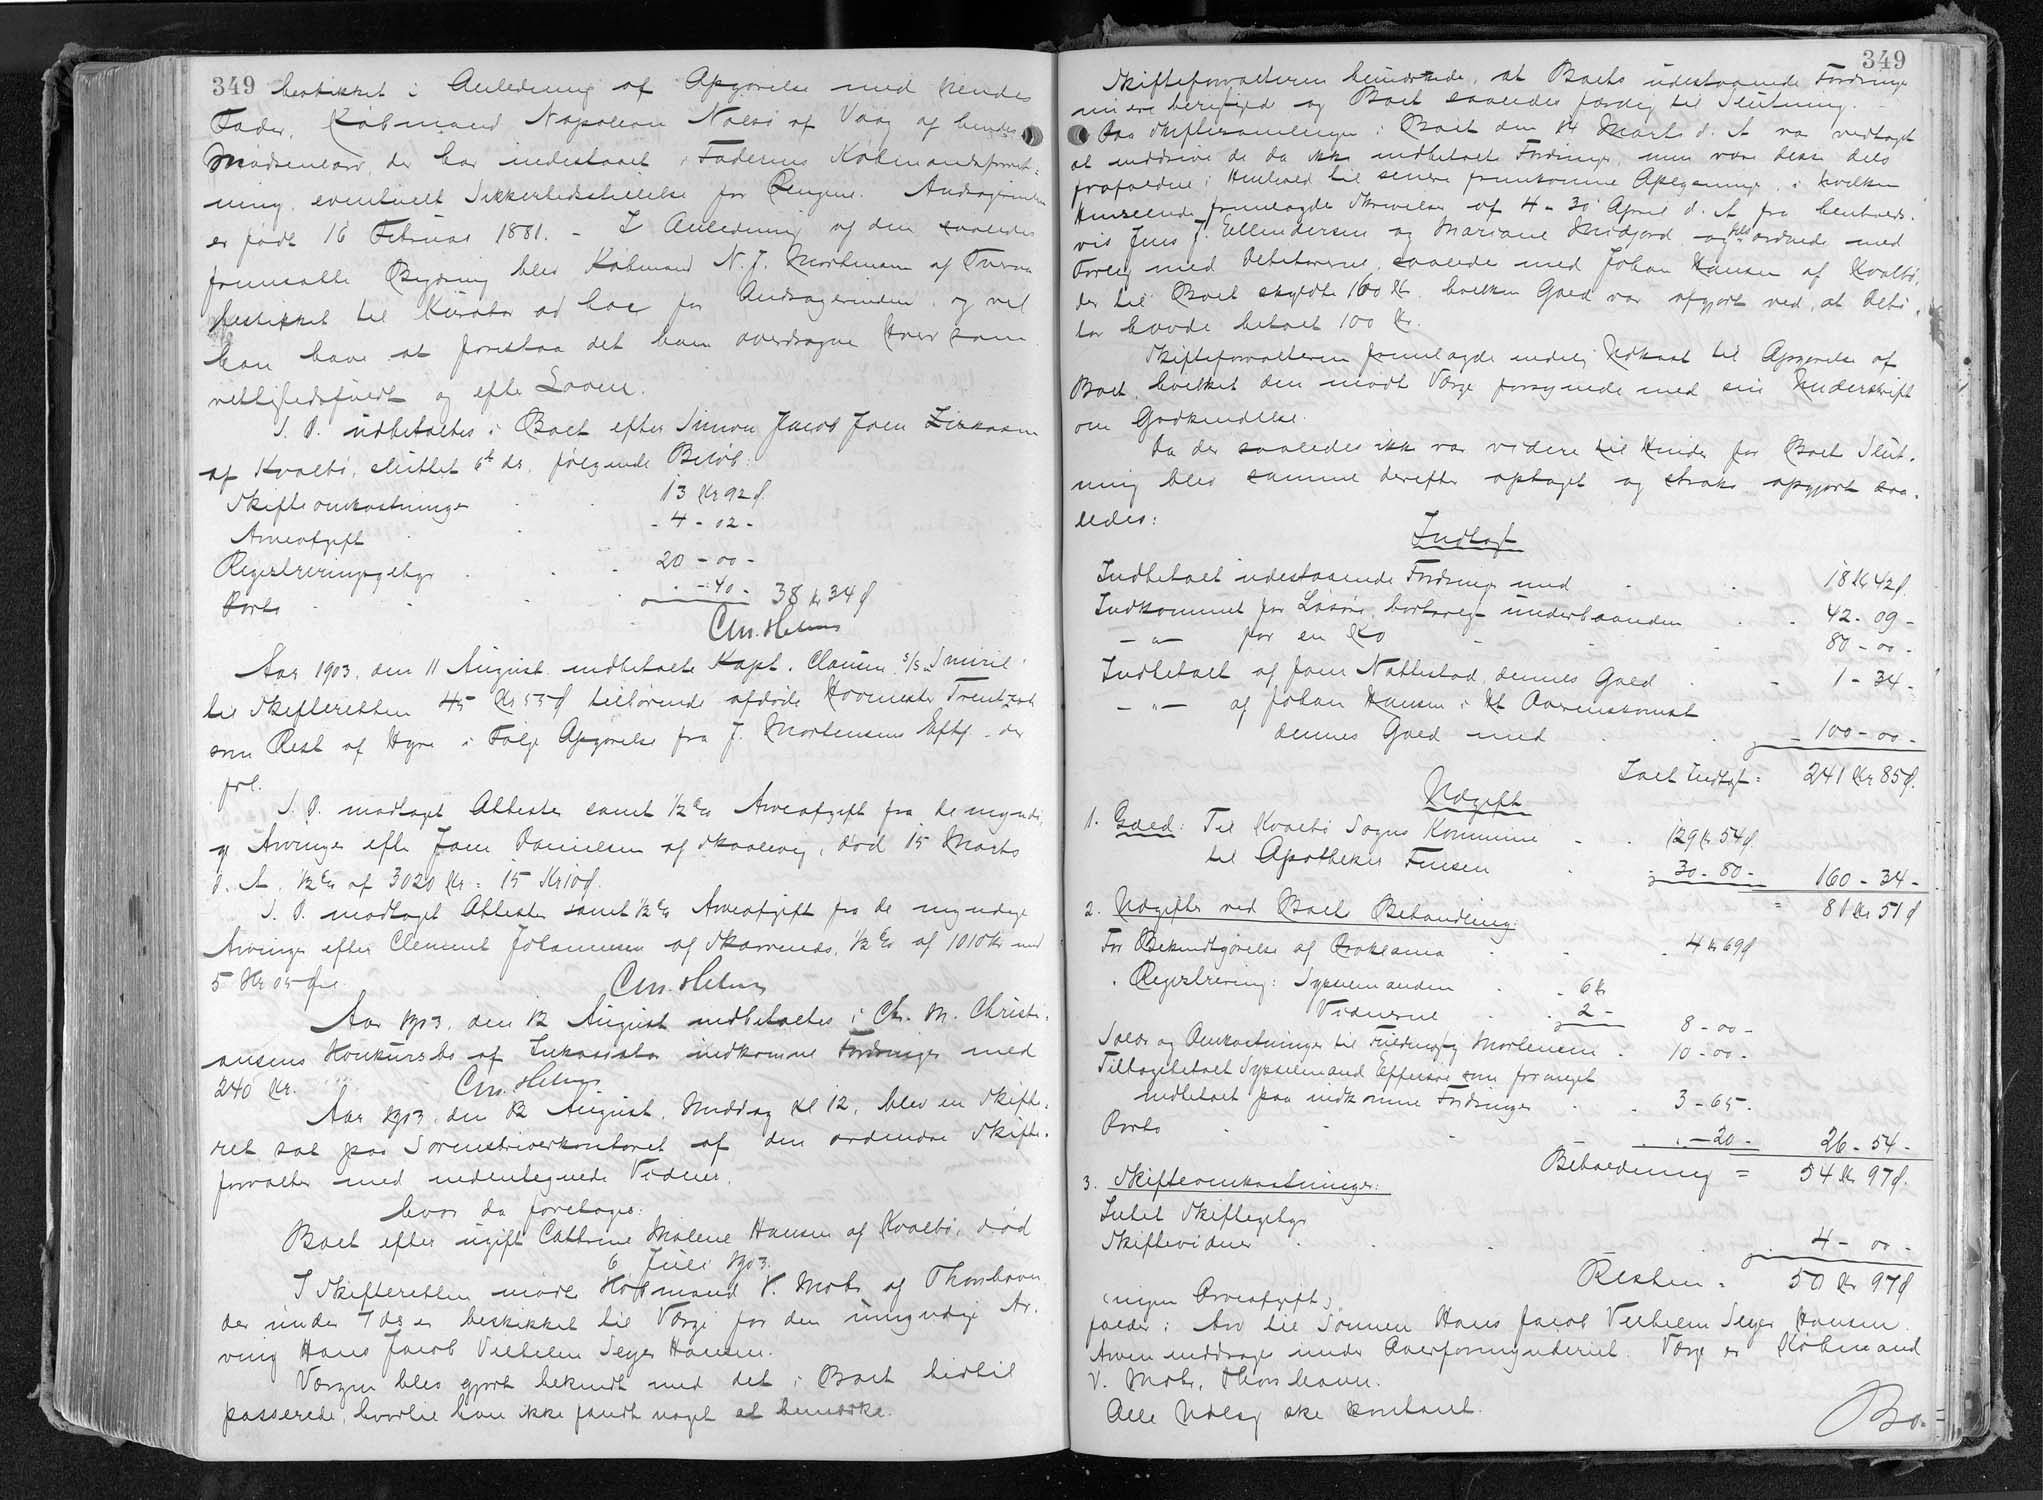 349
beskikket i Anledning af Opgørelse med hendes
Fader, Købmand Napoleon Nolsø af Vaag af hendes
Mødrenearv, der har indestaaet i Faderens Købmandsforret-
ning, eventuelt Sikkerhedsstillelse for Pengene. Andragerinden
er født 16 Februar 1881. - I Anledning af den saaledes
fremsatte Begæring blev Købmand N. J. Mortensen af Tveraa
beskikket til Kurator ad hoc for Andragerinden, og vil
han have at forestaa det ham overdragne Hverv som
rettighedsfuldt og efter Loven.
S. D. udbetaltes i Boet efter Simon Jacob Joen
af Kvalbø, sluttet 6te ds, følgende Beløb:
Skifteomkostninger . . 13 Kr 92 Ø
Arveafgift . . - 4 - 02 -
Registreringsgebyr . . . 20 - 00 -
Porto . . . . - 40 - 38 Kr 34 Ø
Chr. Helms
Aar 1903, den 11 August indbetalte Kapt. Clausen, s/s Smiril
til Skifteretten 45 Kr 55 Ø tilhørende afdøde Hovmester
som Rest af Hyre i Følge Opgørelse fra J. Mortensens Eftf. der
fol.
S. D. modtaget Attester samt 1/2 % Arveafgift fra de myndi-
ge Arvinger efter Joen Danielsen af Skaalevig, død 15 Marts
d. A. 1/2 % af 3020 Kr = 15 Kr 10 Ø.
S. D. modtaget Attester samt 1/2 % Arveafgift fra de myndige
Arvinger efter Clement Johannesen af Skarvenæs, 1/2 % af 1010 Kr med
5 Kr 05 Øre
Chr. Helms
Aar 1903, den 12 August indbetaltes i Chr. M. Christi-
ansens Konkursbo af Inkassator indkomne Fordringer med
240 Kr.
Chr. Helms
Aar 1903, den 12 August, Middag Kl 12, blev en Skifte-
ret sat paa Sorenskriverkontoret af den ordinære Skifte-
forvalter med undertegnede Vidner,
hvor da foretages:
Boet efter ugift Cathrine Malene Hansen af Kvalbø, død
6 Juli 1903.
I Skifteretten mødte Købmand V. Mohr af Thorshavn
der under 7 ds er beskikket til Værge for den umyndige Ar-
ving Hans Jacob Vilhelm Seyer Hansen.
Værgen blev gjort bekendt med det i Boet hidtil
passerede, hvortil han ikke fandt noget at bemærke.
349
Skifteforvalteren bemærkede, at Boets udestaaende Fordringer
nu ere berigtigede og Boet saaledes færdig til Slutning.
Paa Skiftesamlingen i Boet den 14 Marts d. A. var vedtaget
at inddrive de da ikke indbetalte Fordringer, men vare disse dels
frafaldne i Henhold til senere fremkomne Oplysninger, i hvilken
Henseende fremlagdes Skrivelser af 4 - 30 April d. A. fra henholds-
vis Jens J. Ellendersen og Mariane Midjord og dels ordnede med
Forlig med Debitorerne, saaledes med Johan Hansen af Kvalbø,
der til Boet skyldte 160 Kr. hvilken Gæld var afgjort ved, at Debi-
tor havde betalt 100 Kr.
Skifteforvalteren fremlagde endelig Udkast til Opgørelse af
Boet, hvilket den mødte Værge forsynede med sin Underskrift
om Godkendelse.
Da der saaledes ikke var videre til Hinder for Boets Slut-
ning blev samme derefter optaget og straks opgjort saa-
ledes:
Indtægt
Indbetalt udestaaende Fordringer med . . 18 Kr 42 Ø.
Indkommet for Løsøre, bortsolgt underhaanden . . 42 - 09 -
- " - for en Ko . . 80 - 00 -
Indbetalt af Joen Nattestad, dennes Gæld . . 1 - 34 -
- " - af Johan Hansen i Ht Overenskomst
dennes Gæld med . . 100 - 00 -
Ialt Indtægt = 241 Kr 85 Ø.
Udgift
1. Gæld: Til Kvalbø Sogns Kommune . . 129 Kr 54 Ø
til Apotheker Finsen . 30 - 80 - 160 - 34 -
= 81 Kr 51 Ø
2. Udgifter ved Boets Behandling:
For Bekendtgørelse af Proklama . . . 4 Kr 69 Ø
. Registrering: Sysselmanden . . 6 Kr
Vidnerne . . 2 - 8 - 00 -
Salær og Omkostninger til Fuldmægtig Mortensen . 10 - 00 -
Tilbagebetalt Sysselmand Effersøe som formeget
indbetalt paa indkomne Fordringer . . 3 - 65 -
Porto . . . . - 20 - 26 - 54 -
Beholdning = 54 Kr 97 Ø.
3. Skifteomkostninger:
Intet Skiftegebyr
Skiftevidner . . . . 4 - 00 -
Resten = 50 Kr 97 Ø
(ingen Arveafgift)
falder i Arv til Sønnen Hans Jacob Vilhelm Seyer Hansen.
Arven inddrages under Overformynderiet. Værge er Købmand
V. Mohr, Thorshavn.
Alle Udlæg ske kontant.
Bo-